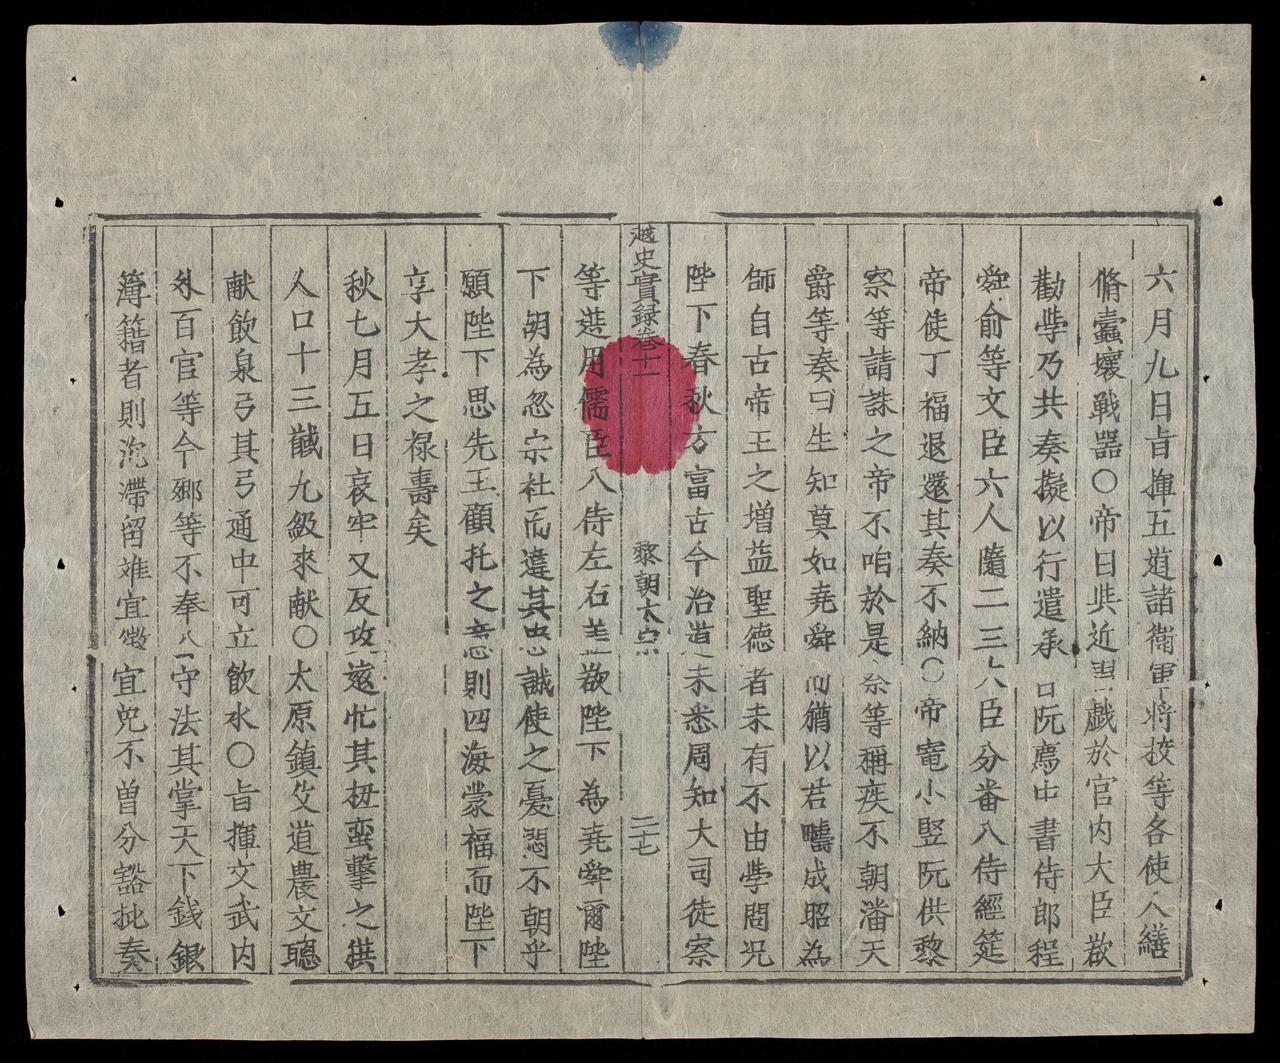 六月九日旨揮五道諸衛軍將挍等各使人繕
脩蠹壞戰器〇帝日與近習戯於官内大臣欲
勸學乃共奏擬以行遣承旨阮廌中書侍郎程
舜俞等文臣六人隨二三大臣分番入侍經筵
帝使丁福退還其奏不納〇帝竜小竪阮供黎
察等請誅之帝不咱於是察等稱疾不朝潘天
爵等奏曰生知莫如堯舜而猶以君疇成昭為
師自古帝王之增益聖德者未有不由學問况
陛下春秋方富古今治道未悉周知大司徒察
越史實録卷十一 黎朝太宗 二十七
等選用儒臣入侍左右盖欲陛下為堯舜爾陛
下胡為忽宗社而違其忠誠使之憂悶不朝乎
願陛下思先王顧托之意則四海蒙福而陛下
享大孝之禄壽矣
秋七月五日哀牢又反攻遨忙其扭蛮擊之獲
人口十三馘九級來献〇太原鎮父道農文聰
献飲泉弓其弓通中可立飲水〇旨揮文武内
外百官等今郷等不奉公守法其掌天下錢銀
簿籍者則沉滯留難宜徵宜免不曾分豁批奏